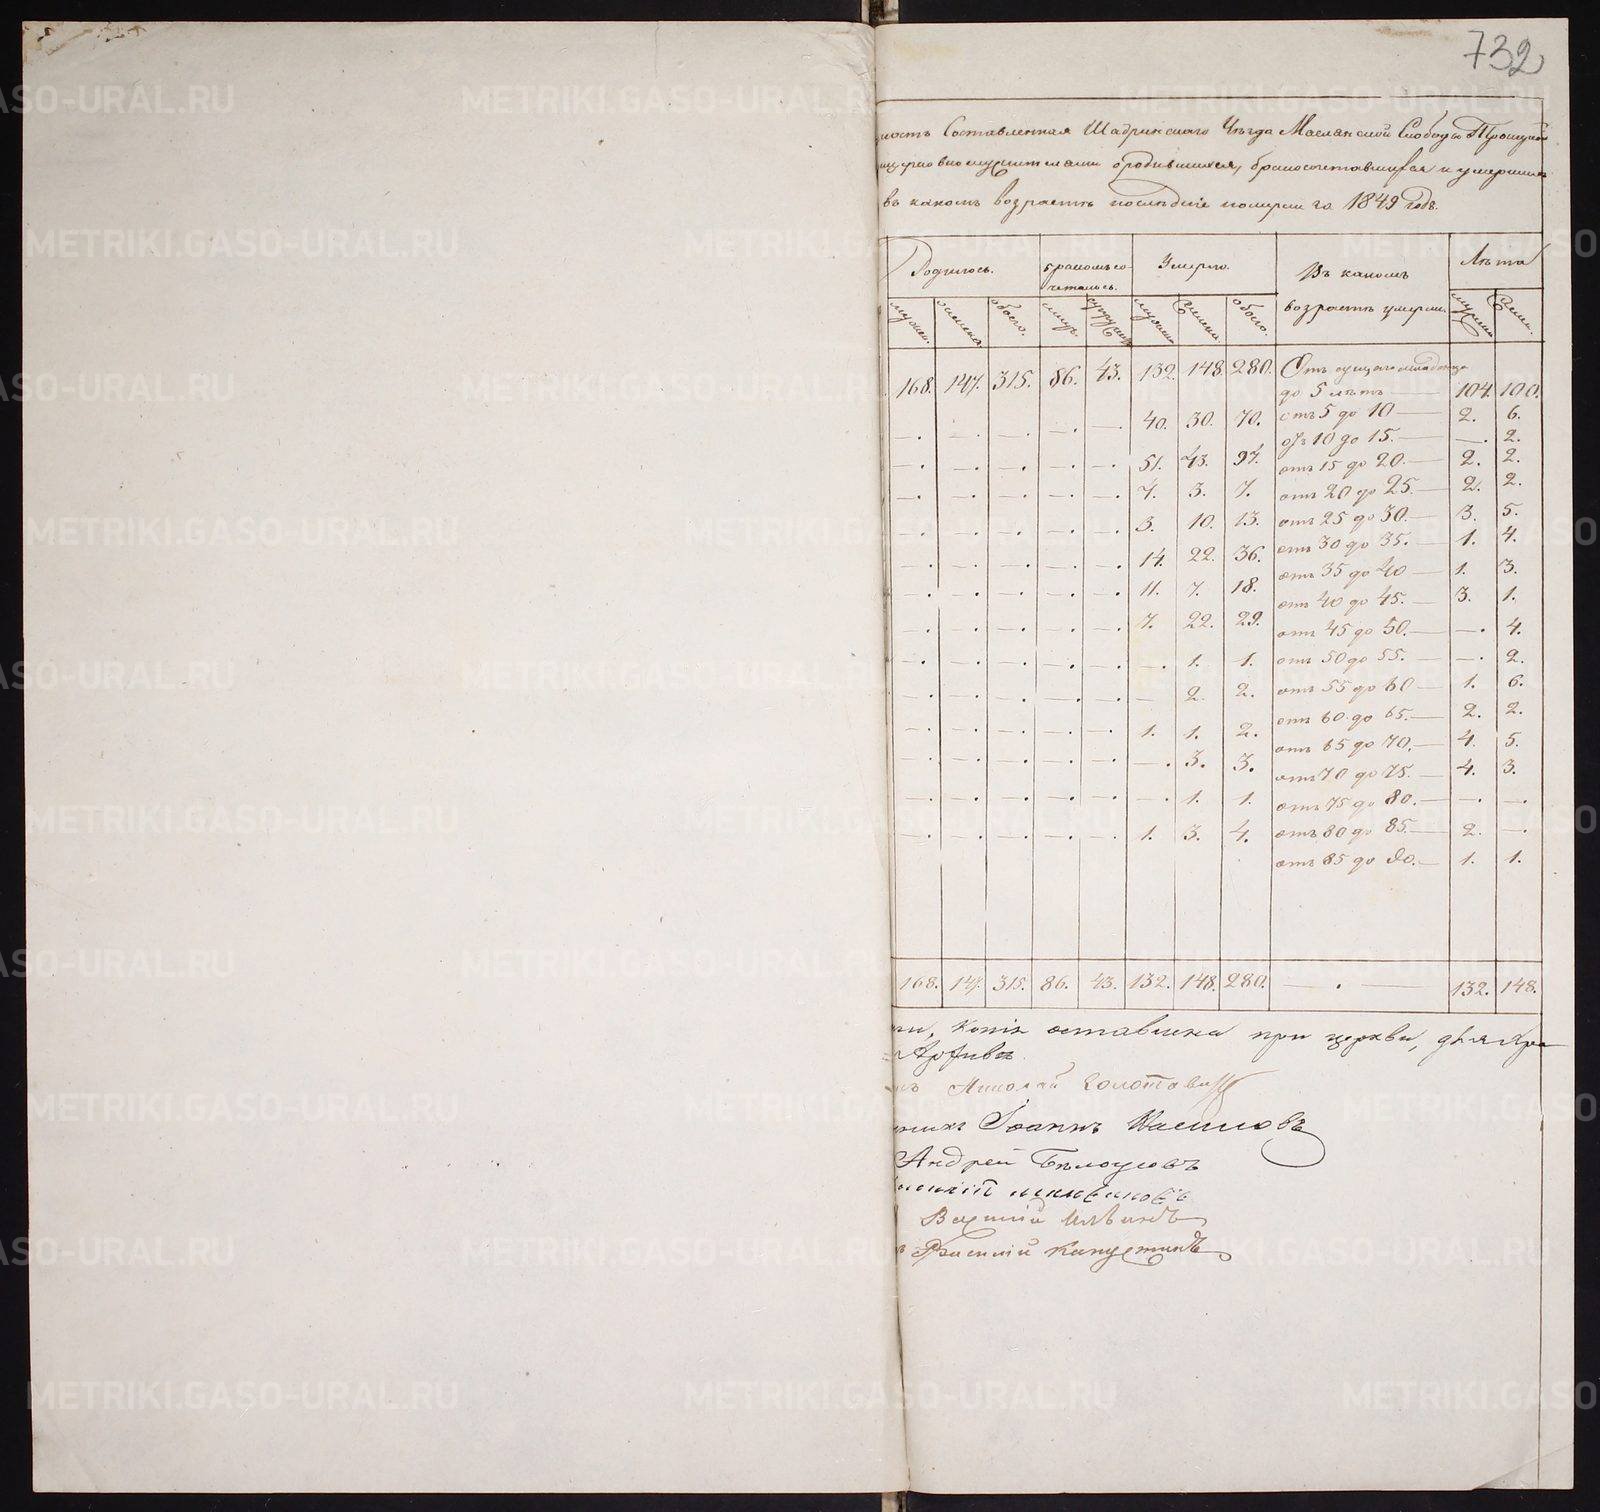 732
ность Составленная Шадринскаго Уѣзда Маслянской Слободы Троицкой
о родившихся, бракосочетавшихся и умершихъ
въ какомъ возрастѣ последніе померли за 1849 годъ.
Родилось. бракомъ со-четалось. Умерло. Въ какомъ возрастѣ умерли. Лѣта
мужеск. женска. обоего. лицъ. супружес. мужеск. Женск. обоего. мужеска Женск.
168. 147. 315. 86. 43. 132. 148. 280. Отъ сущаго младенца
до 5 лѣтъ — 104. 100.
—. —. —. —. —. 40. 30. 70. отъ 5 до 10 — 2. 6.
отъ 10 до 15. — —. 2.
—. —. —. —. —. 51. 43. 94. отъ 15 до 20. — 2. 2.
—. —. —. —. —. 4. 3. 7. отъ 20 до 25. — 2. 2.
—. —. —. —. —. 3. 10. 13. отъ 25 до 30. — 3. 5.
отъ 30 до 35. — 1. 4.
—. —. —. —. —. 14. 22. 36. отъ 35 до 40 — 1. 3.
—. —. —. —. —. 11. 7. 18. отъ 40 до 45. — 3. 1.
—. —. —. —. —. 7. 22. 29. отъ 45 до 50. — —. 4.
—. —. —. —. —. —. 1. 1. отъ 50 до 55. — —. 2.
—. —. —. —. —. — 2. 2. отъ 55 до 60 — 1. 6.
—. —. —. —. —. 1. 1. 2. отъ 60 до 65. — 2. 2.
отъ 65 до 70. — 4. 5.
—. —. —. —. —. —. 3. 3. отъ 70 до 75. — 4. 3.
—. —. —. —. —. —. 1. 1. отъ 75 до 80. — —. —.
—. —. —. —. —. 1. 3. 4. отъ 80 до 85. — 2. —.
отъ 85 до 90. — 1. 1.
168. 147. 315. 86. 43. 132. 148. 280. — . — 132. 148.
копія оставлена при церкви, для хра
Архивѣ
Николай Золотавин
Іоаннъ Насиловъ
Андрей Бѣлоусовъ
Василій Ильинъ
Василій Капустинъ